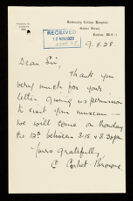 University College Hospital,
Gower Street,
London, W.C.1.
RECEIVED
9.5.28
Dear Sir,
Thank you
very much for your
letter giving us permission
to visit your museum –
we will come on Monday
the 12th between 2.15 & 2.30pm
Yours gratefully,
E